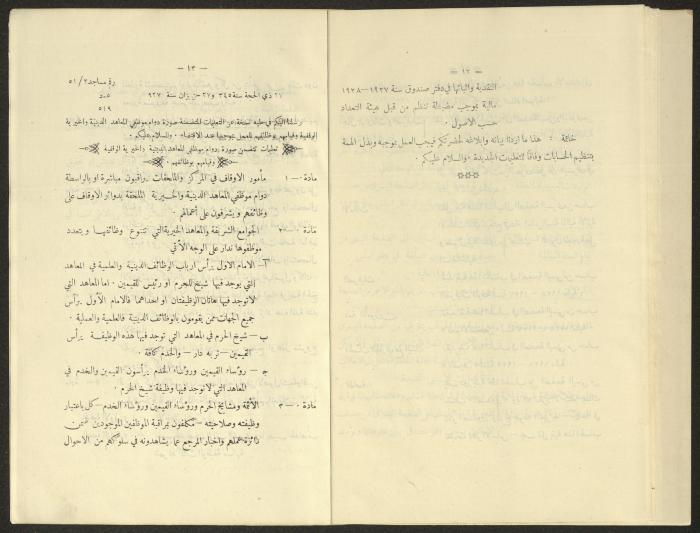 — ١٢ —
النقدية واثباتها في دفتر صندوق سنة ١٩٢٧—١٩٢٨
مالية بموجب مضبطة تنظم من قبل هيئة التعداد
حسب الاصول.
خاتمة : هذا ما اردنا بيانه وابلاغه لحضرتكم فيجب العمل بموجبه وبذل الهمة
بتنظيم الحسابات وفاقاً للتعليمات الجديدة والسلام عليكم.
— ١٣ —
رة مساجد ٥١/٢
٢٧ ذي الحجة سنة ٣٤٥ و٢٧ حزيران سنة ٩٢٧
٥١٩
نرسل اليكم في طيه نسخة عن التعليمات المتضمنة صورة دوام موظفي المعاهد الدينية والخيرية
الوقفية وقيامهم بوظائفهم للعمل بموجبها عند الاقتضاء . والسلام عليكم .
تعليمات تتضمن صورة دوام موظفي المعاهد الدينية والخيرية الوقفية
وقيامهم بوظائفهم .
مادة — ١ مأمور الاوقاف في المركز والملحقات يراقبون مباشرة او بالواسطة
دوام موظفي المعاهد الدينية والخيرية الملحقة بدوائر الاوقاف على
وظائفهم ويشرفون على أعمالهم .
مادة — ٢ الجوامع الشريفة والمعاهد الخيرية التي تتنوع وظائفها ويتعدد
موظفوها تدار على الوجه الآتي
آ — الامام الاول يرأس ارباب الوظائف الدينية والعلمية في المعاهد
التي يوجد فيها شيخ للحرم او رئيس للقيمين . اما المعاهد التي
لا توجد فيها هاتان الوظيفتان او احداهما فالامام الأول يرأس
جميع الجهات ممن يقومون بالوظائف الدينية والعلمية والعملية .
ب — شيخ الحرم في المعاهد التي توجد فيها هذه الوظيفة يرأس
القيمين — تربه دار — والخدم كافة .
ج — رؤساء القيمين ورؤساء الخدم يرأسون القيمين والخدم في
المعاهد التي لا توجد فيها وظيفة شيخ الحرم .
مادة — ٣ الأئمة ومشايخ الحرم ورؤساء القيمين ورؤساء الخدم — كل باعتبار
وظيفته وصلاحيته — مكلفون بمراقبة الموظفين الموجودين ضمن
دائرة عملهم واخبار المرجع عما يشاهدونه في سلوكهم من الاحوال